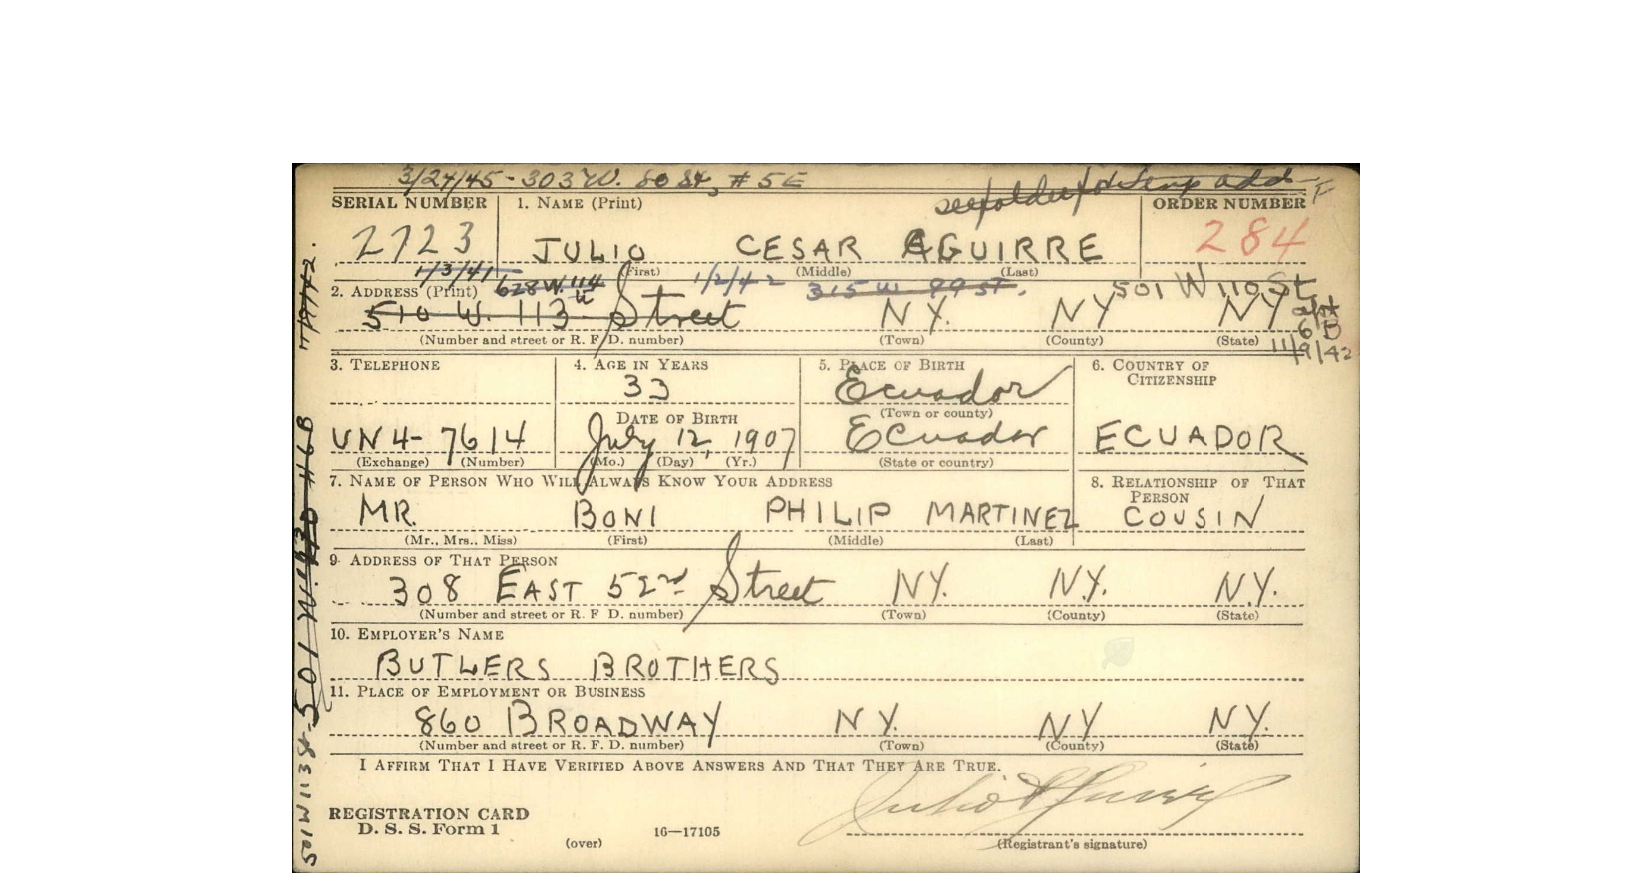 3/27/45 - 303 W. 80 St, # 5E
SERIAL NUMBER 1. NAME (Print) ORDER NUMBER
2723 JULIO CESAR AGUIRRE 284
(First) (Middle) (Last)
1/3/41 628 W. 114 1/2/42 315 W 99 ST. 501 W 110 St
2. ADDRESS (Print)
510 W. 113 Street N.Y. NY NY
(Number and street or R. F. D. number) (Town) (County) (State) 11/9/42
3. TELEPHONE 4. AGE IN YEARS 5. PLACE OF BIRTH 6. COUNTRY OF
CITIZENSHIP
33 Ecuador
DATE OF BIRTH (Town or county)
UN 4- 7614 July 12, 1907 Ecuador ECUADOR
(Exchange) (Number) (Mo.) (Day) (Yr.) (State or country)
7. NAME OF PERSON WHO WILL ALWAYS KNOW YOUR ADDRESS 8. RELATIONSHIP OF THAT
PERSON
MR. BONI PHILIP MARTINEZ COUSIN
(Mr., Mrs., Miss) (First) (Middle) (Last)
9. ADDRESS OF THAT PERSON
308 EAST 52nd Street N.Y. N.Y. N.Y.
(Number and street or R. F. D. number) (Town) (County) (State)
10. EMPLOYER'S NAME
BUTLERS BROTHERS
11. PLACE OF EMPLOYMENT OR BUSINESS
860 BROADWAY N.Y. NY NY.
(Number and street or R. F. D. number) (Town) (County) (State)
I AFFIRM THAT I HAVE VERIFIED ABOVE ANSWERS AND THAT THEY ARE TRUE.
Julio Aguirre
REGISTRATION CARD
D. S. S. Form 1 16—17105
(over) (Registrant's signature)
501 W 113 St.